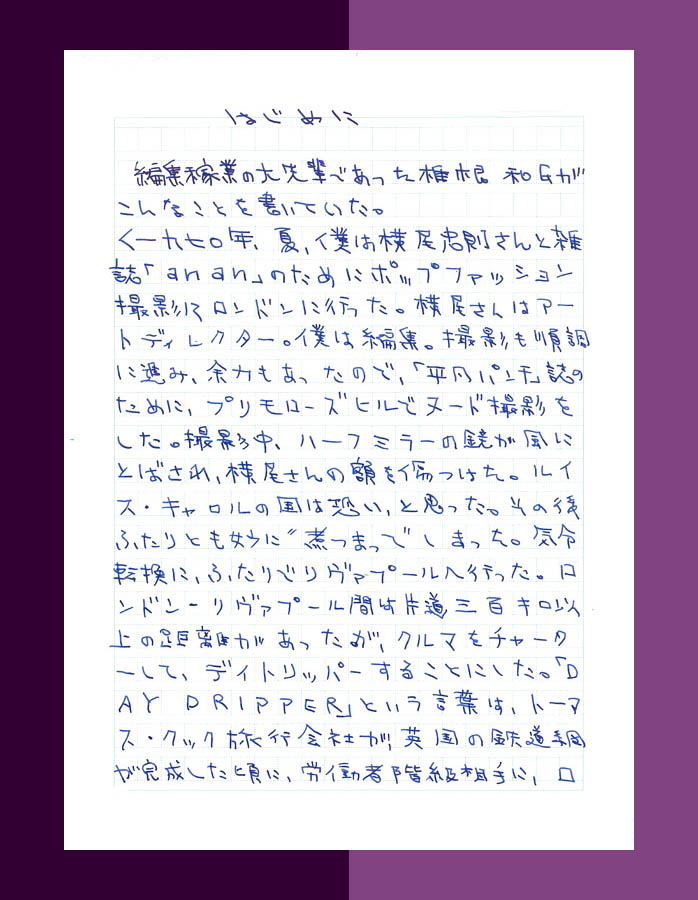 はじめに
編集稼業の大先輩であった椎根 和氏が
こんなことを書いていた。
〈一九七〇年、夏、僕は横尾忠則さんと雑
誌「anan」のためにポップファッション
撮影にロンドンに行った。横尾さんはアー
トディレクター。僕は編集。撮影も順調
に進み、余力もあったので、「平凡パンチ」誌の
ために、プリモローズヒルでヌード撮影を
した。撮影中、ハーフミラーの鏡が風に
とばされ、横尾さんの額を傷つけた。ルイ
ス・キャロルの国は恐い、と思った。その後
ふたりとも妙に〝煮つまっ〟てしまった。気分
転換に、ふたりでリヴァプールへ行った。ロ
ンドン－リヴァプール間は片道三百キロ以
上の距離があったが、クルマをチャータ
ーして、デイトリッパーすることにした。「D
AY DRIPPER」という言葉は、トーマ
ス・クック旅行会社が、英国の鉄道網
が完成した頃に、労働者階級相手に、ロ